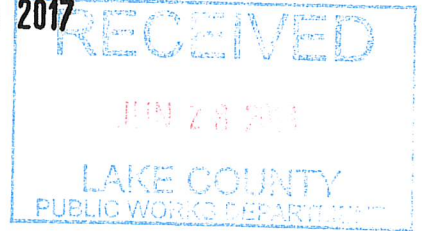 2017
RECEIVED
JUN 28
LAKE COUNTY
PUBLIC WORKS DEPARTMENT